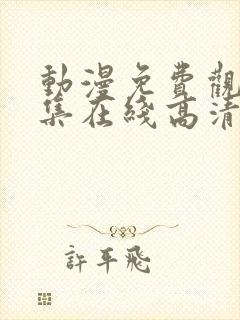 動漫免費觀
集在綫高清
許平飛